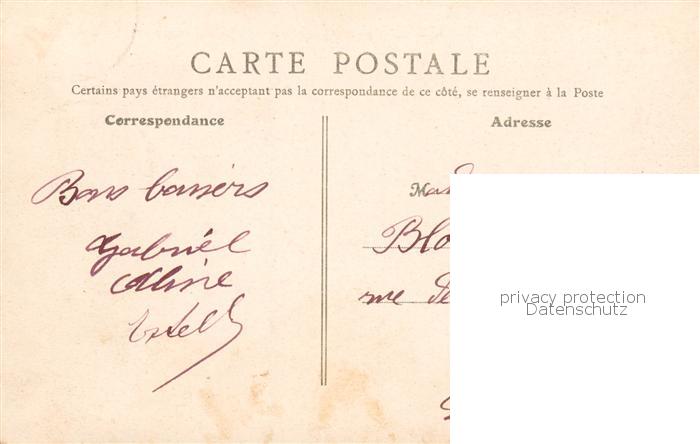 CARTE POSTALE
Certains pays étrangers n'acceptant pas la correspondance de ce côté, se renseigner à la Poste
Correspondance
Adresse
Bons baisers
Gabriel
Aline
M
Blo
rue de
privacy protection
Datenschutz